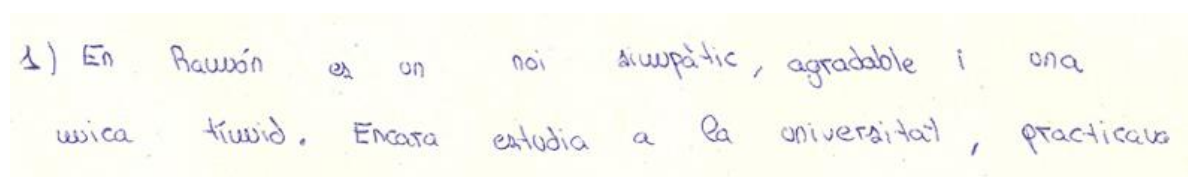 1) En Ramón es un noi simpàtic, agradable i una
mica tímid. Encara estudia a la universitat, practicava